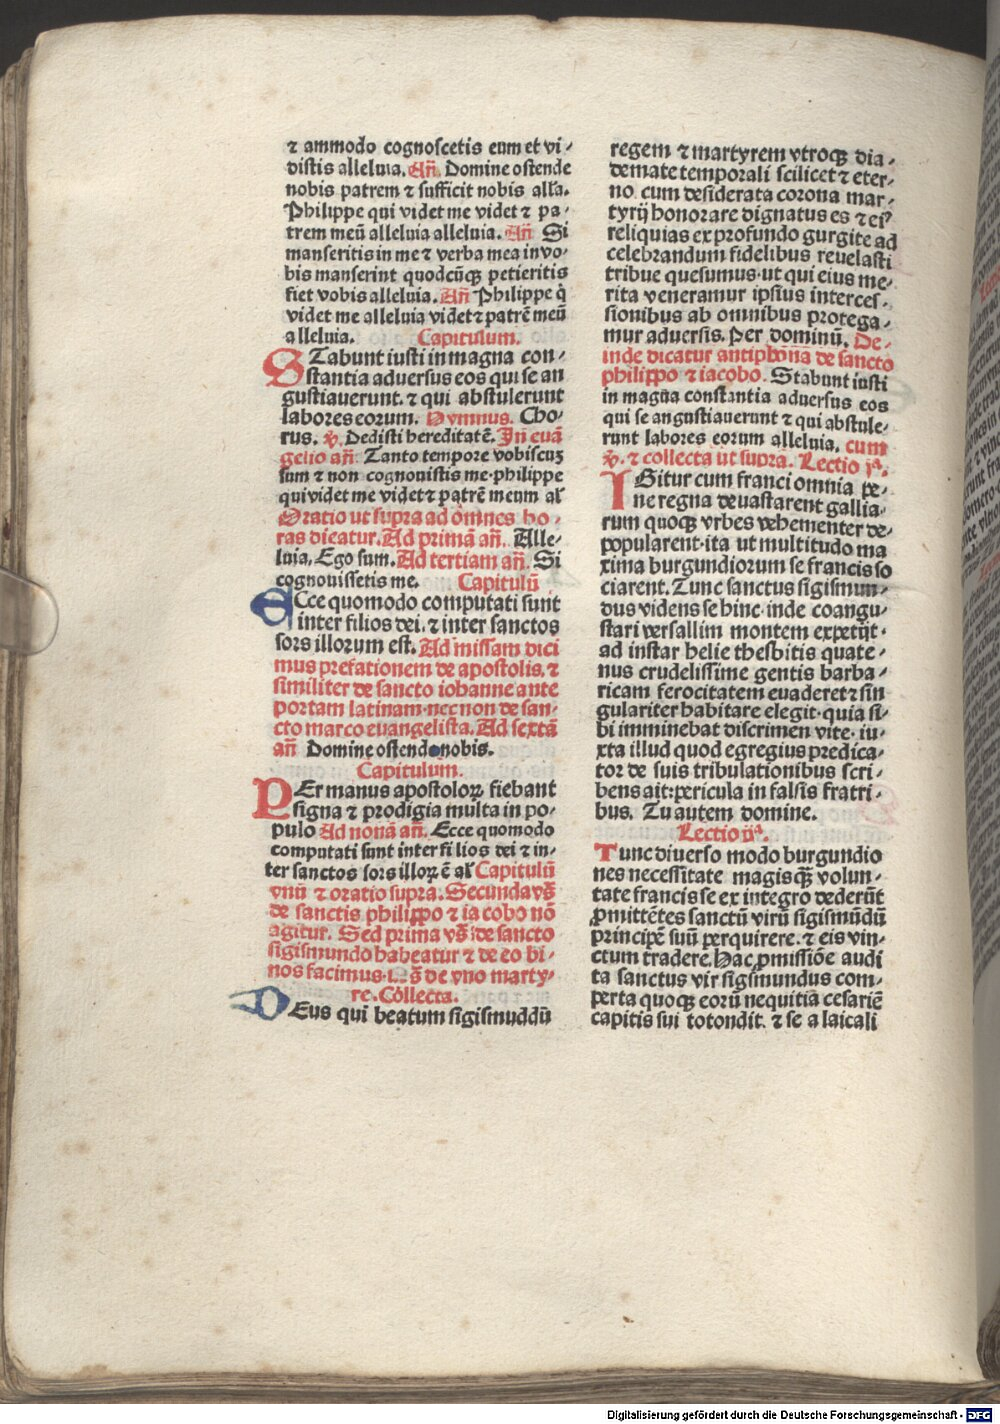 ⁊ ammodo cognoſcetis eum et vi⸗
diſtis alleluia. An̄. Domine oſtende
nobis patrem ⁊ ſufficit nobis alľa.
Philippe qui videt me videt ⁊ pa⸗
trem meū alleluia alleluia. An̄ Si
manſeritis in me ⁊ verba mea in vo⸗
bis manſerint quodcūqꝫ petieritis
fiet vobis alleluia. An̄ Philippe q̇
videt me alleluia videt ⁊ patrē meū
alleluia. Capitulum.
STabunt iuſti in magna con⸗
ſtantia aduerſus eos qui ſe an
guſtiauerunt. ⁊ qui abſtulerunt
labores eorum. Hymnus. Cho⸗
rus. ꝟ. Dediſti hereditatē. In euā
gelio an̄. Tanto tempore vobiscuꝫ
ſum ⁊ non cognouiſtis me·philippe
qui videt me videt ⁊ patrē meum al̄
Oratio ut ſupra ad omnes ho⸗
ras dicatur. Ad primā an̄. Alle⸗
luia. Ego ſum. Ad tertiam an̄. Si
cognouiſſetis me. Capitulū
ECce quomodo computati ſunt
inter filios dei. ⁊ inter ſanctos
ſors illorum eſt. Ad miſſam dici
mus prefationem de apoſtolis. ⁊
ſimiliter de ſancto iohanne ante
portam latinam·nec non de ſan⸗
cto marco euangeliſta. Ad ſextā
an̄ Domine oſtende nobis.
Capitulum.
PEr manus apoſtoloꝝ fiebant
ſigna ⁊ prodigia multa in po⸗
pulo Ad nonā an̄. Ecce quomodo
computati ſunt inter fi lios dei ⁊ in⸗
ter ſanctos ſors illoꝝ ē al̄ Capitulū
vnū ⁊ oratio ſupra. Secunda vō
de ſanctis philippo ⁊ ia cobo nō
agitur. Sed prima vō de ſancto
ſigiſmundo habeatur ⁊ de eo bi⸗
nos facimus·l. s̄ de vno marty⸗
re. Collecta.
DEus qui beatum ſigiſmuddū
regem ⁊ martyrem vtroqꝫ dia⸗
demate temporali ſcilicet ⁊ eter⸗
no cum deſiderata corona mar⸗
tyrij honorare dignatus es ⁊ eiꝰ
reliquias ex profundo gurgite ad
celebrandum fidelibus reuelaſti
tribue queſumus·ut qui eius me⸗
rita veneramur ipſius interceſ⸗
ſionibus ab omnibus protega⸗
mur aduerſis. Per dominū. De⸗
inde dicatur antiphōna de ſancto
philippo ⁊ iacobo. Stabunt iuſti
in magna conſtantia aduerſus eos
qui ſe anguſtiauerunt ⁊ qui abſtule⸗
runt labores eorum alleluia. cum
ꝟ. ⁊ collecta ut ſupra. Lectio jᵃ.
IGitur cum franci omnia pe⸗
ne regna deuaſtarent gallia⸗
rum quoqꝫ vrbes vehementer de⸗
popularent·ita ut multitudo ma
xima burgundiorum ſe francis ſo
ciarent. Tunc ſanctus ſigiſmun⸗
dus videns ſe hinc·inde coangu⸗
ſtari verſallim montem expetijt·
ad inſtar helie thesbitis quate⸗
nus crudeliſſime gentis barba⸗
ricam ferocitatem euaderet ⁊ ſin
gulariter habitare elegit·quia ſi⸗
bi imminebat diſcrimen vite· iu⸗
xta illud quod egregius predica⸗
tor de ſuis tribulationibus ſcri⸗
bens ait:pericula in falſis fratri⸗
bus. Tu autem domine.
Lectio ijᵃ.
Tunc diuerſo modo burgundio
nes neceſſitate magisqꝫ volun⸗
tate francis ſe ex integro dederūt
ꝓmittētes ſanctū virū ſigiſmūdū
principē ſuū perquirere. ⁊ eis vin⸗
ctum tradere. Hac ꝓmiſſiōe audi
ta ſanctus vir ſigiſmundus com⸗
perta quoqꝫ eorū nequitia ceſariē
capitis ſui totondit. ⁊ ſe a laicali
Digitalisierung gefördert durch die Deutsche Forschungsgemeinschaft - DFG